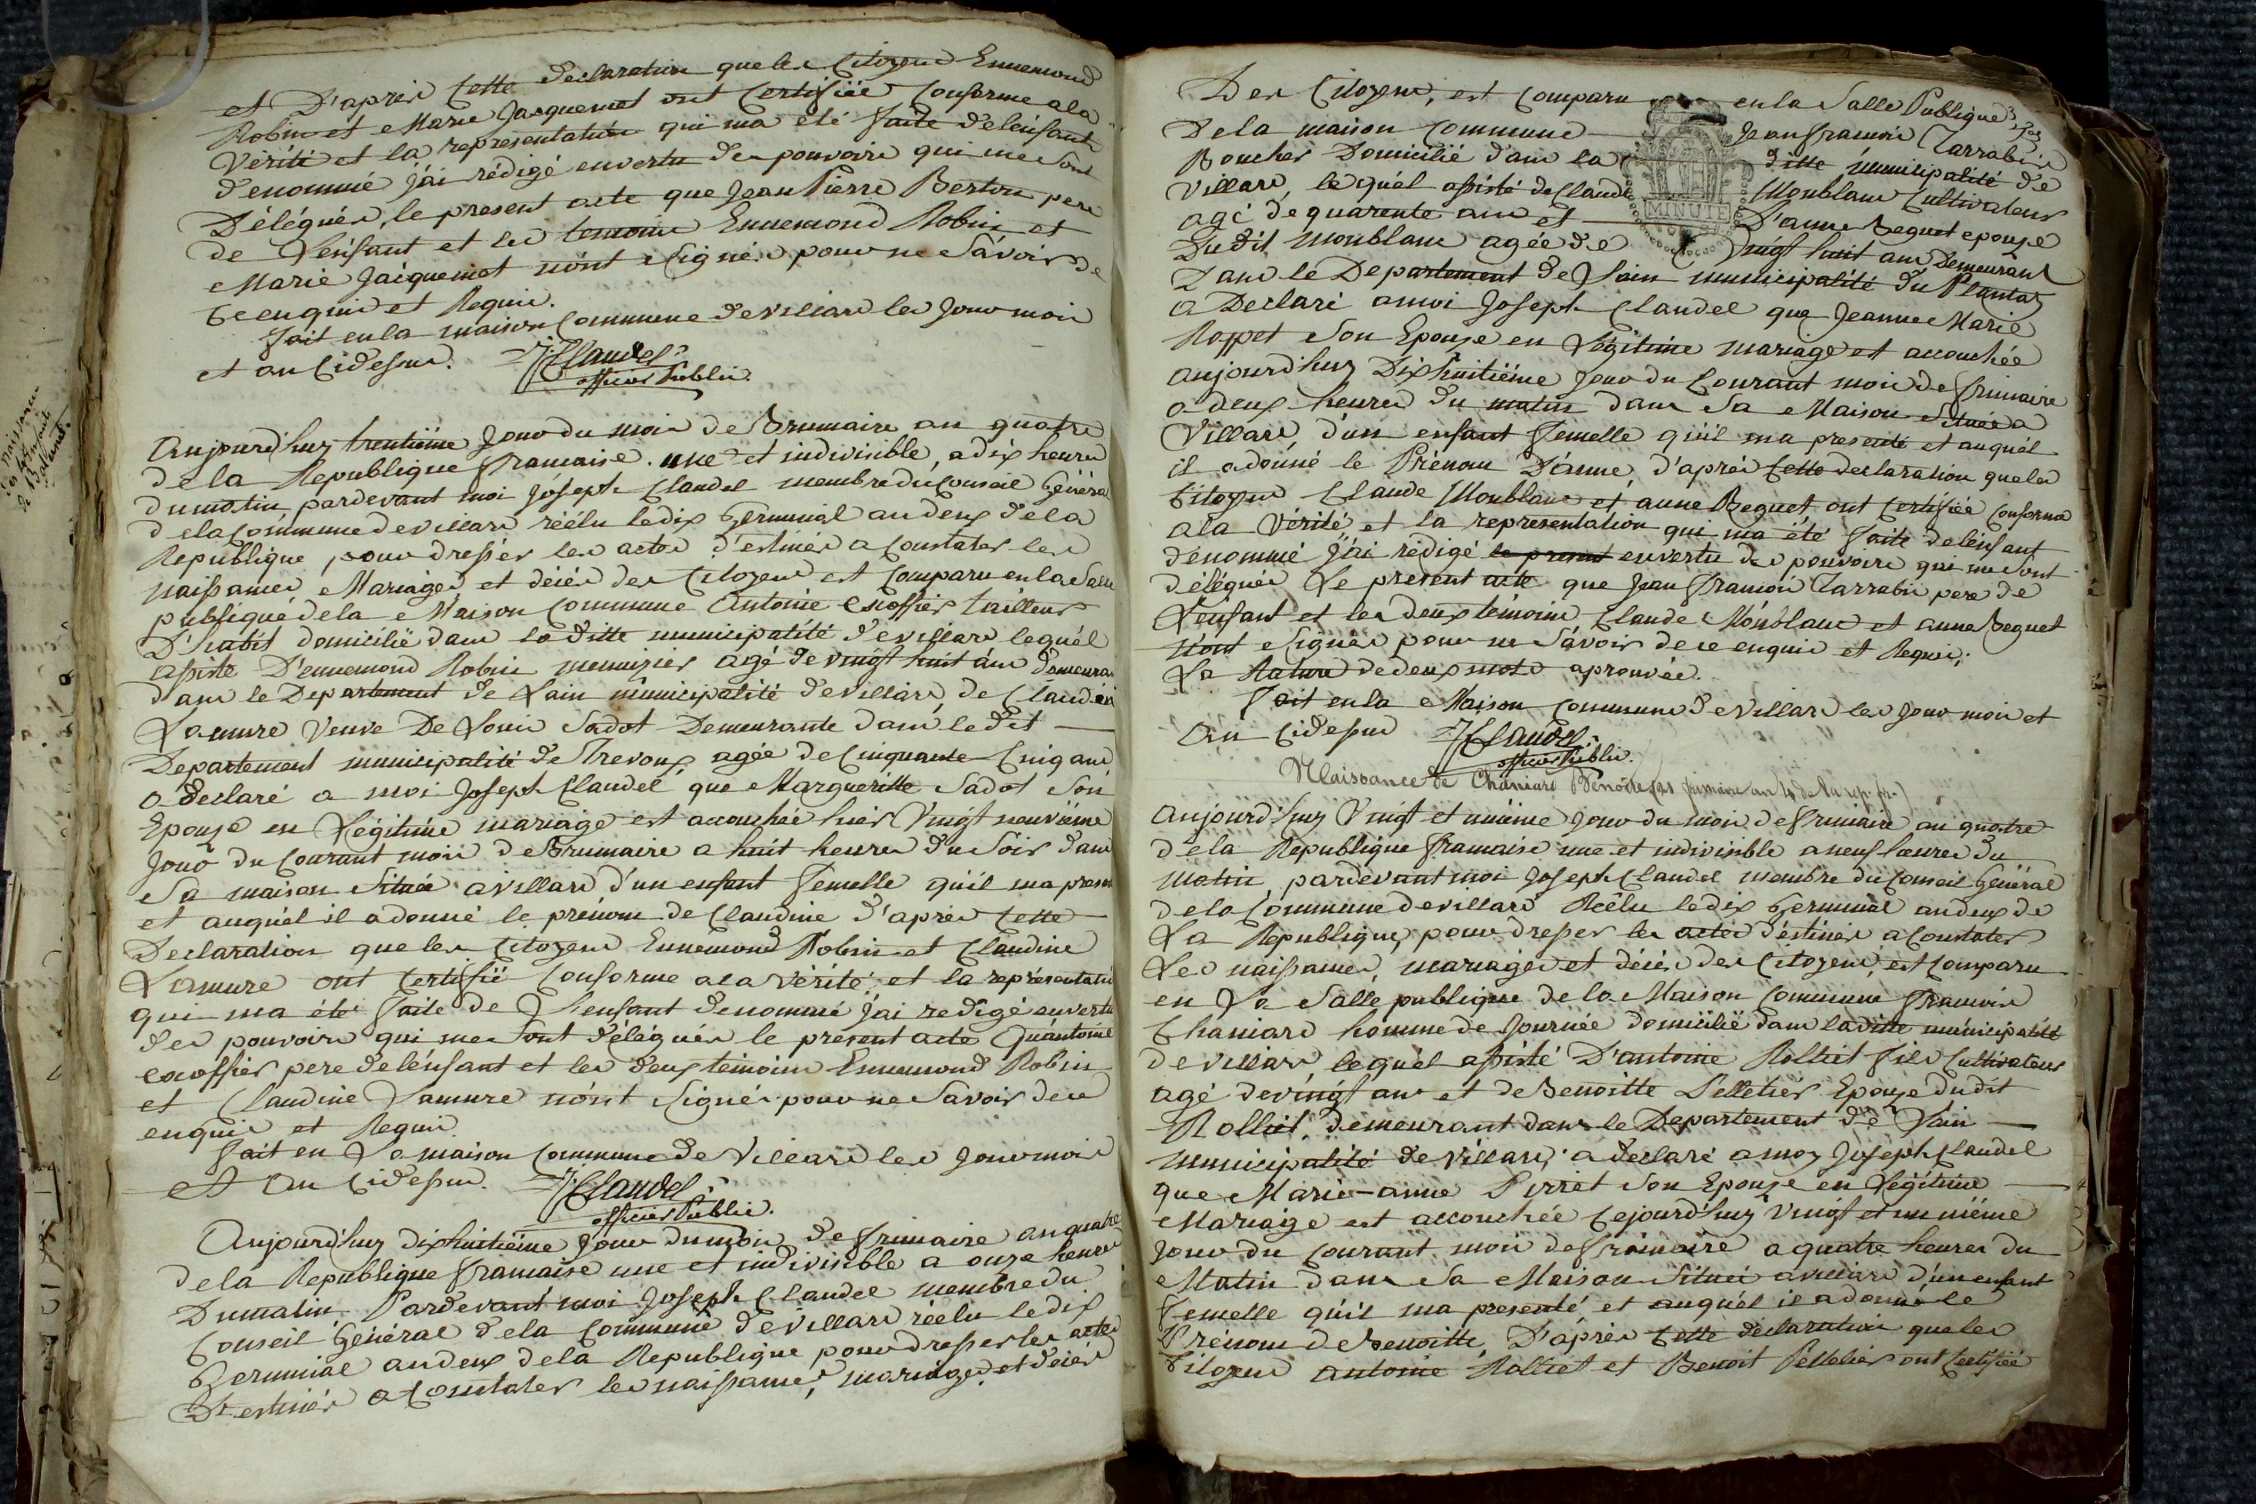 et D'après cette declaration que les Citoyens Ennemond
Robin et Marie Jacquemet ont Certifiée Conforme a la
Vérité et la representation qui ma été faite de l'énfant
dénommé j'ai rédigé en vertu des pouvoirs qui me sont
Délégués, le present acte que Jean Pierre Berton pere
de l'enfant et les temoins Ennemond Robin et
Marie Jacquemet n'ont signés pour ne Sávoir de
ce enquis et Requis.
fait en la maison Commune de villars les Jour mois
et an Cidessus. JClaudel
officier Public.
Aujourd'huy trentiéme Jour du mois de Brumaire an quatre
de la Republique francaise une et indivisible, a dix heures
du matin, pardevant moi Joseph Claudel membre du Conseil Général
de la Commune de villars réélu le dix Germinal an deux de la
Republique pour dresser les actes d'estinés a Constater les
naissances, Mariages et décés des Citoyens est Comparu en la Salle
publique de la Maison Commune Antoine Excoffier tailleur
D'habit domicilié dans la ditte municipalité de villars lequél
assisté D'ennemond Robin menuizier agé de vingt huit ans demeurant
dans le Departement de Lain municipalité de villars, de Claudine
Lamure Veuve De Louis Sadot Demeurante dans le dit
Departement municipalité de Trevoux agée de Cinquante Cinq ans
a declaré a moi Joseph Claudel que Margueritte Sadot Son
Epouze en Légitime mariage est accouchée hier Vingt neuviéme
Jour du Courant mois de Brumaire a huit heures du Soir dans
Sa maison Située a villars d'un enfant femelle qu'il ma presenté
et auquél il a donné le prénom de Claudine d'après Cette
Declaration que les Citoyens Ennemond Robin et Claudine
Lamure ont Certifié Conforme a la Vérité, et la représentation
qui ma été faite de L'enfant denommé j'ai redigé en vertu
des pouvoirs qui me sont délégués le present acte Qu'antoine
Excoffier pere de lénfant et les deux témoins Ennemond Robin
et Claudine Lamure n'ónt Signés pour ne Savoir de ce
enquis et Requis.
fait en La maison Commune de Villars les Jour mois
et an Cidessus. JClaudel
officier Public.
Aujourd'huy dixhuitiéme Jour du mois de frimaire an quatre
de la Republique francaise une et indivisible a onze heures
Du matin. Pardevant moi Joseph Claudel membre du
Conseil Général de la Commune de villars réélu le dix
Germinal an deux de la Republique pour dresser les actes
D'estinés a Constater les naissances, mariages et décés
Des Citoyens, est Comparu en la Salle Publique
De la maison Commune Jean francois Carrabin
Boucher Domicilié dans la ditte municipalité de
Villars, lequél assisté de Claude Monblanc Cultivateur
agé de quarente ans et D'anne Beguet epouze
Du dit Monblanc agée de Vingt huit ans Demeurant
Dans le Departement de Lain municipalité du Plantay
a Declaré a moi Joseph Claudel que Jeanne Marie
Roppet Son Epouze en Légitime mariage et accouchée
aujourd'huy Dixhuitiéme Jour du Courant mois de frimaire
a deux heures du matin dans Sa Maison Située a
Villars, d'un enfant femelle qu'il ma presenté et auquél
il a donné le Prénom D'anne, d'aprés Cette declaration que les
Citoyens Claude Monblanc et anne Beguet ont Certifiée Conforme
a la Vérité et la representation qui ma été faite de lénfant
dénommé j'ai rédigé le present en vertu des pouvoirs qui me sont
délégués Le present acte que Jean francois Carrabin pere de
L'enfant et les deux témoins Claude Monblanc et anne Beguet
n'ont Signés pour ne Sávoir de ce enquis et Requis,
La Rature de deux mots aprouvée.
Fait en la Maison Commune de villars les Jour mois et
An Cidessus JClaudel
officier Public.
MINUTE
Naissance de Chaniard Benoite (21 frimaire an 4 de la rép. fr.)
Aujourd'huy Vingt et uniéme Jour du mois de frimaire an quatre
de la Republique francaise une et indivisible a neuf heures du
matin, pardevant moi Joseph Claudel membre du Conseil Général
de la Commune de villars Réélu le dix Germinal an deux de
La Republique, pour dresser les actes d'éstinés a Constater
Les naissances, mariages et décés des Citoyens, est Comparu
en La Salle publique de la Maison Commune francois
Chaniard homme de Journée domicilié dans laditte municipalité
de villars lequél assisté D'antoine Rolliet fils Cultivateur
agé de vingt ans et de Benoitte Pelletier Epouze du dit
Rolliet, demeurant dans le Departement de Lain
municipalité de villars, a declaré a moy Joseph Claudel
que Marie-anne Perret Son Epouze en Légitime
Mariage est accouchée Cejourd'huy Vingt et un niéme
Jour du Courant mois de frimaire a quatre heures du
Matin dans Sa Maison Située a villars d'un enfant
femelle qu'il ma presenté et auquél il a donné le
Prénom de Benoitte, D'aprés Cette declaration que les
Citoyens Antoine Rolliet et Benoit Pelletier ont Certifiée